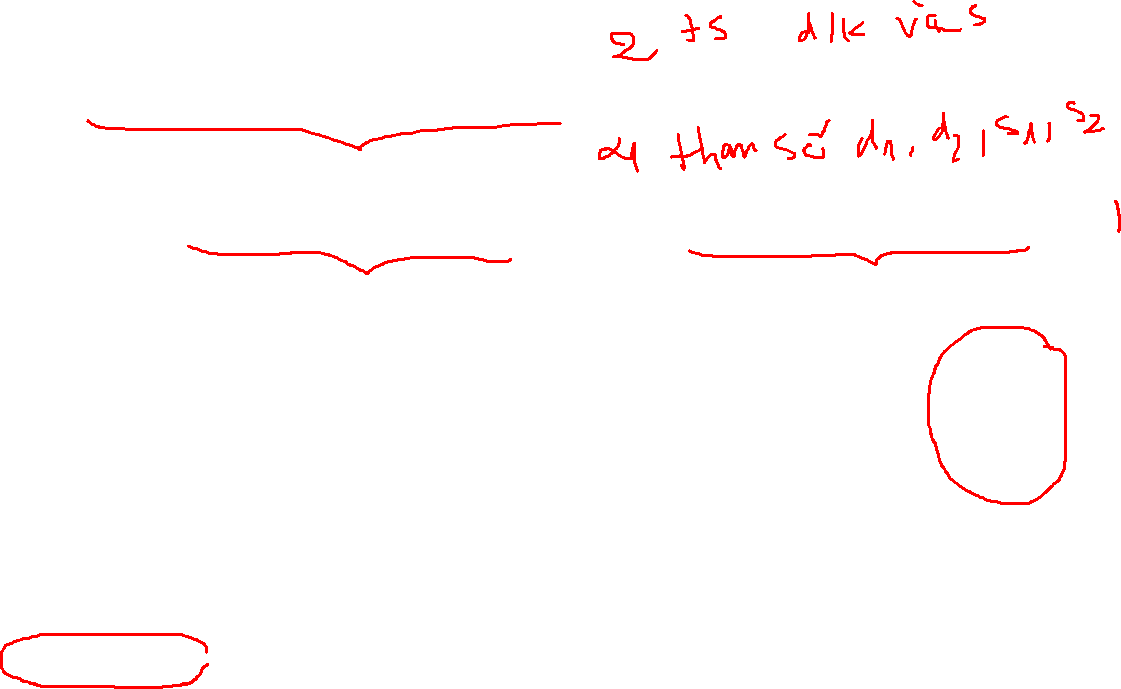 2 ts d/k và s
4 tham số d1, d2, s1, s2